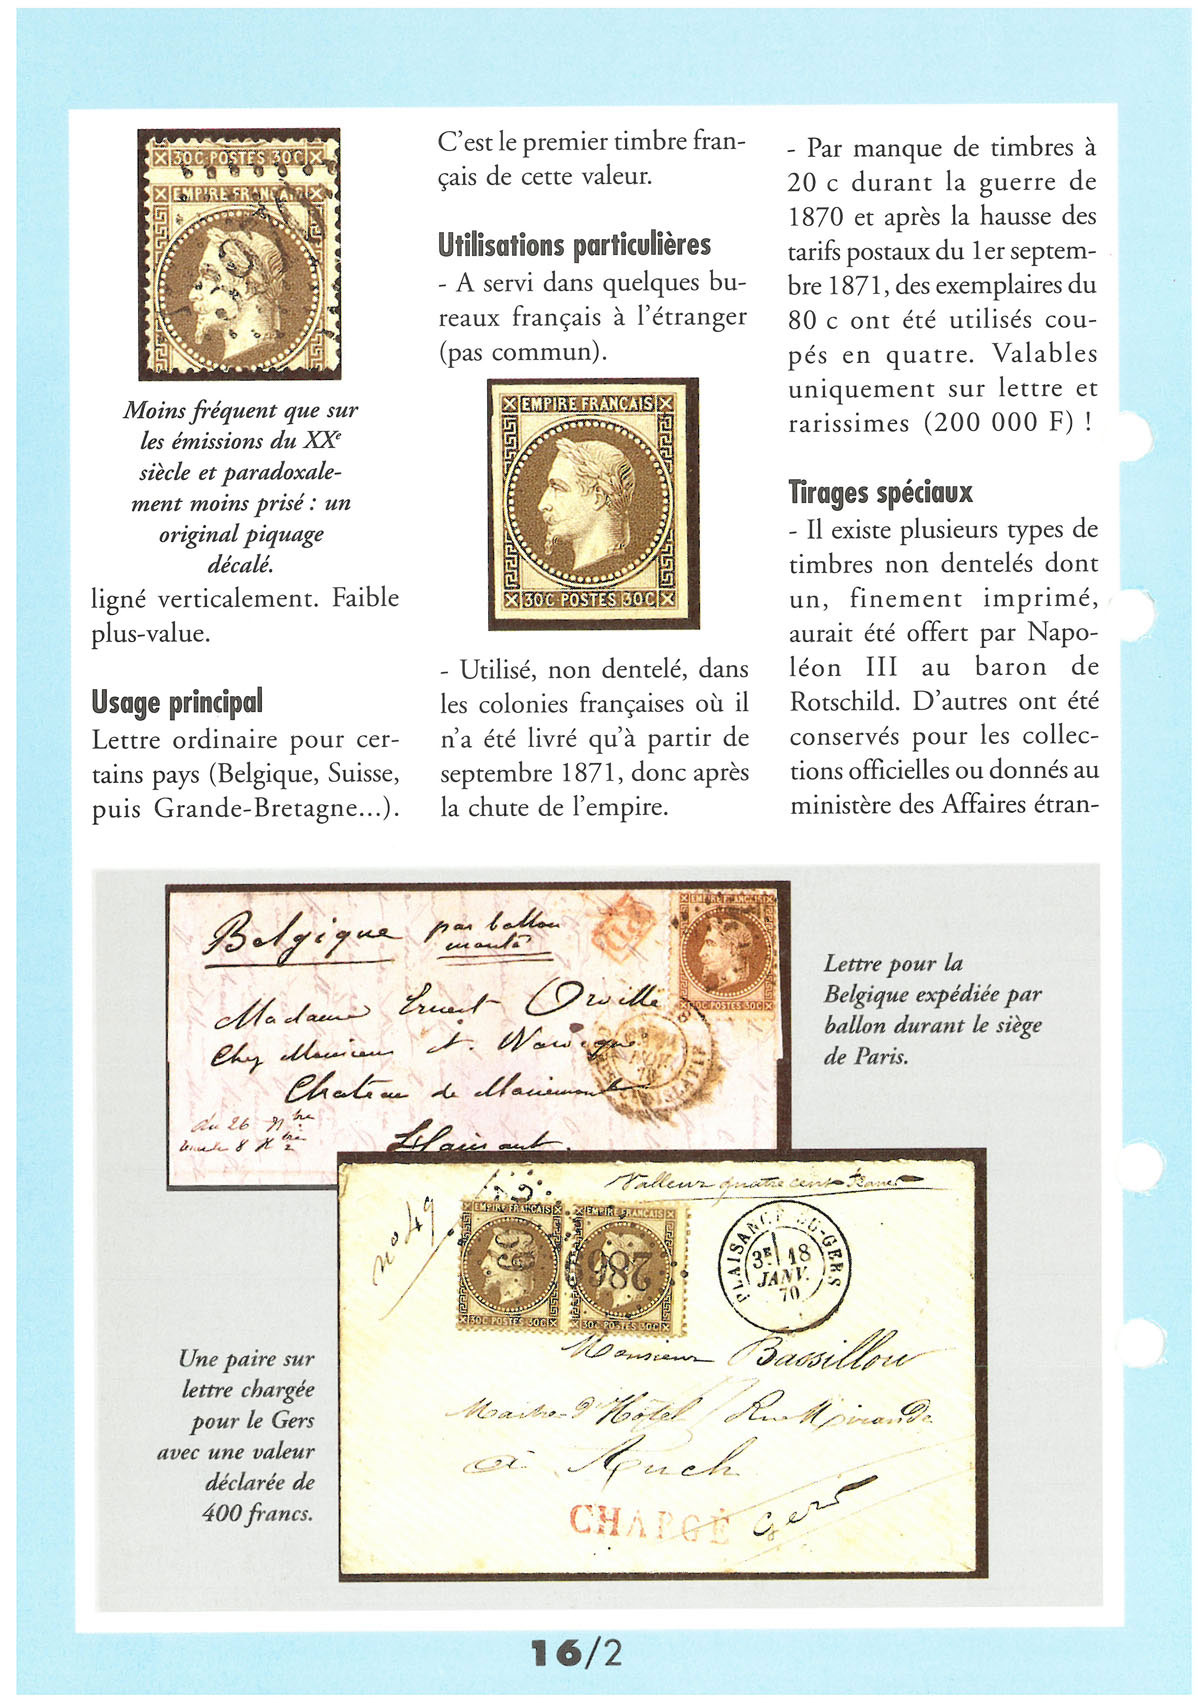 30C·POSTES 30C·
EMPIRE FRANCAIS
Moins fréquent que sur
les émissions du XXe
siècle et paradoxale-
ment moins prisé : un
original piquage
décalé.
ligné verticalement. Faible
plus-value.
Usage principal
Lettre ordinaire pour cer-
tains pays (Belgique, Suisse,
puis Grande-Bretagne...).
C'est le premier timbre fran-
çais de cette valeur.
Utilisations particulières
- A servi dans quelques bu-
reaux français à l'étranger
(pas commun).
EMPIRE FRANÇAIS
30C·POSTES 30C·
- Utilisé, non dentelé, dans
les colonies françaises où il
n'a été livré qu'à partir de
septembre 1871, donc après
la chute de l'empire.
- Par manque de timbres à
20 c durant la guerre de
1870 et après la hausse des
tarifs postaux du 1er septem-
bre 1871, des exemplaires du
80 c ont été utilisés cou-
pés en quatre. Valables
uniquement sur lettre et
rarissimes (200 000 F) !
Tirages spéciaux
- Il existe plusieurs types de
timbres non dentelés dont
un, finement imprimé,
aurait été offert par Napo-
léon III au baron de
Rotschild. D'autres ont été
conservés pour les collec-
tions officielles ou donnés au
ministère des Affaires étran-
Belgique par ballon
monté
PD
EMPIRE FRANCAIS
30C·POSTES 30C·
Madame Ernest Orville
Chez Monsieur
Château de Mariemont
Hainaut.
du 26
Lettre pour la
Belgique expédiée par
ballon durant le siège
de Paris.
Valleur quatre cent francs
no 49
EMPIRE FRANCAIS EMPIRE FRANCAIS
2869
30C·POSTES 30C· 30C·POSTES 30C·
PLAISANCE-DU-GERS
3E 18
JANV.
70
Monsieur Bassillou
Maitre-d'Hôtel Rue Mirande
à Auch
CHARGÉ Gers
Une paire sur
lettre chargée
pour le Gers
avec une valeur
déclarée de
400 francs.
16/2